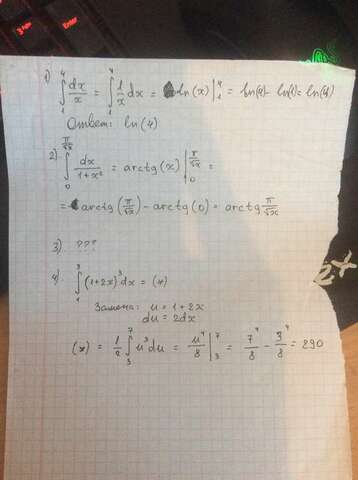 1) ∫₁⁴ dx/x = ∫₁⁴ 1/x dx = ln(x) |₁⁴ = ln(4) - ln(1) = ln(4)
Ответ: ln(4)
2) ∫₀^(π/√x) dx/(1+x²) = arctg(x) |₀^(π/√x) =
= arctg(π/√x) - arctg(0) = arctg π/√x
3) ???
4) ∫₁³ (1+2x)³ dx = (*)
Замена: u = 1 + 2x
du = 2dx
(*) = 1/2 ∫₃⁷ u³ du = u⁴/8 |₃⁷ = 7⁴/8 - 3⁴/8 = 290